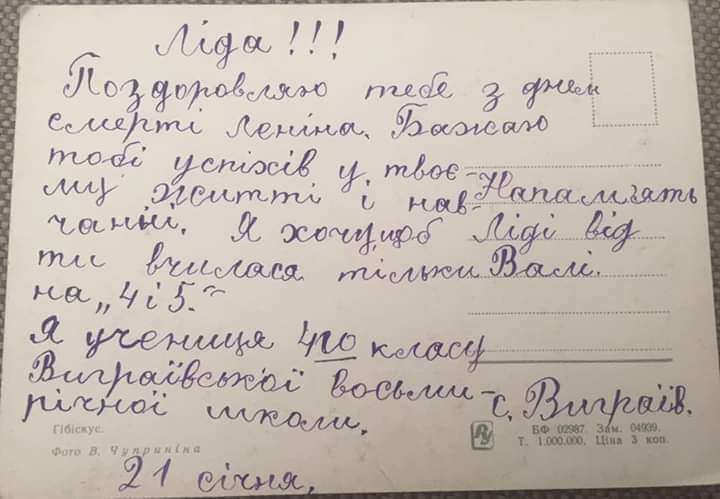 Ліда!!!
Поздоровляю тебе з днем
смерті Леніна. Бажаю
тобі успіхів у твоє-
му житті і нав-
чанні. Я хочу, щоб
ти вчилася тільки
на „4 і 5."
Я учениця 4го класу
Виграївської восьми-
річної школи.
21 січня.
Напам'ять
Ліді від
Валі.
с. Виграїв.
Гібіскус.
Фото В. Чуприніна
РУ
БФ 02987. Зам. 04939.
Т. 1.000.000. Ціна 3 коп.